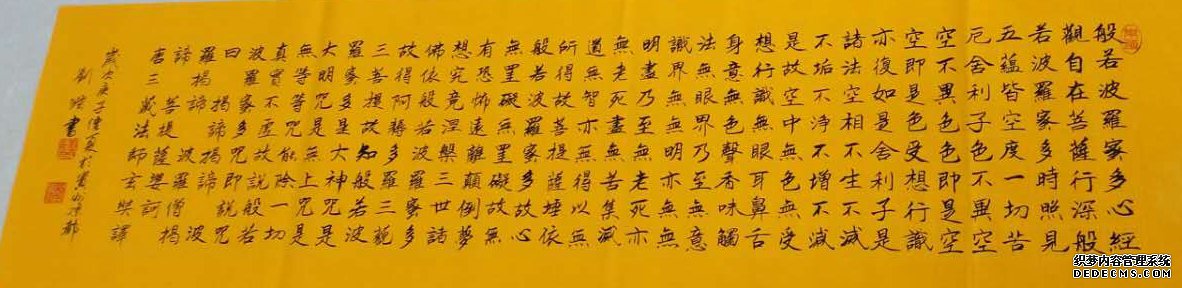 般若波羅蜜多心經
觀自在菩薩行深般
若波羅蜜多時照見
五蘊皆空度一切苦
厄舍利子色不異空
空不異色色即是空
空即是色受想行識
亦復如是舍利子是
諸法空相不生不滅
不垢不淨不增不減
是故空中無色無受
想行識無眼耳鼻舌
身意無色聲香味觸
法無眼界乃至無意
識界無無明亦無無
明盡乃至無老死亦
無老死盡無苦集滅
道無智亦無得以無
所得故菩提薩埵依
般若波羅蜜多故心
無罣礙無罣礙故無
有恐怖遠離顛倒夢
想究竟涅槃三世諸
佛依般若波羅蜜多
故得阿耨多羅三藐
三菩提故知般若波
羅蜜多是大神咒是
大明咒是無上咒是
無等等咒能除一切
真實不虛故說般若
波羅蜜多咒即說咒
曰 揭諦揭諦 波
羅揭諦 波羅僧揭
諦 菩提薩婆訶
唐三藏法師玄奘譯
歲次庚子仲夏於
劉 書
织梦内容管理系统
DEDECMS.COM